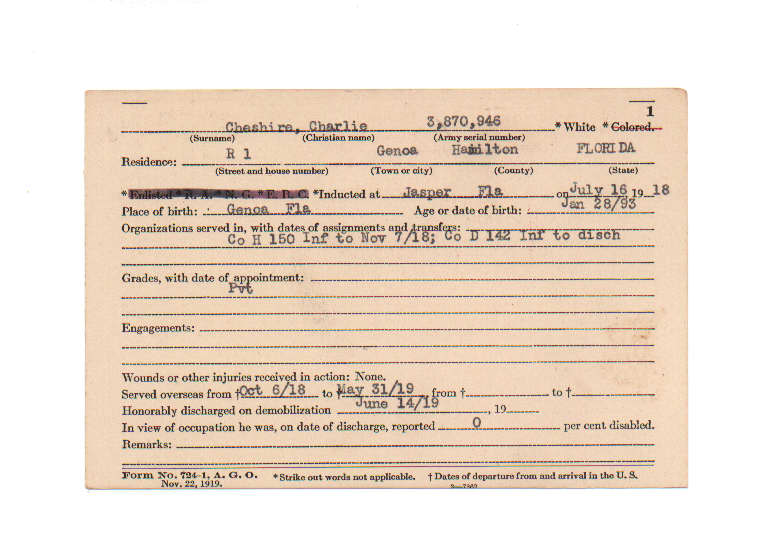 1
Cheshire, Charlie 3,870,946 *White *Colored.
(Surname) (Christian name) (Army serial number)
R 1 Genoa Hamilton FLORIDA
Residence:
(Street and house number) (Town or city) (County) (State)
*Enlisted *R. A. *N. G. *E. R. C. *Inducted at Jasper Fla on July 16 1918
Place of birth: Genoa Fla Age or date of birth: Jan 28/93
Organizations served in, with dates of assignments and transfers:
Co H 150 Inf to Nov 7/18; Co D 142 Inf to disch
Grades, with date of appointment:
Pvt
Engagements:
Wounds or other injuries received in action: None.
Served overseas from †Oct 6/18 to †May 31/19, from † to †
Honorably discharged on demobilization June 14/19, 19
In view of occupation he was, on date of discharge, reported 0 per cent disabled.
Remarks:
Form No. 724-1, A. G. O. *Strike out words not applicable. †Dates of departure from and arrival in the U. S.
Nov. 22, 1919.